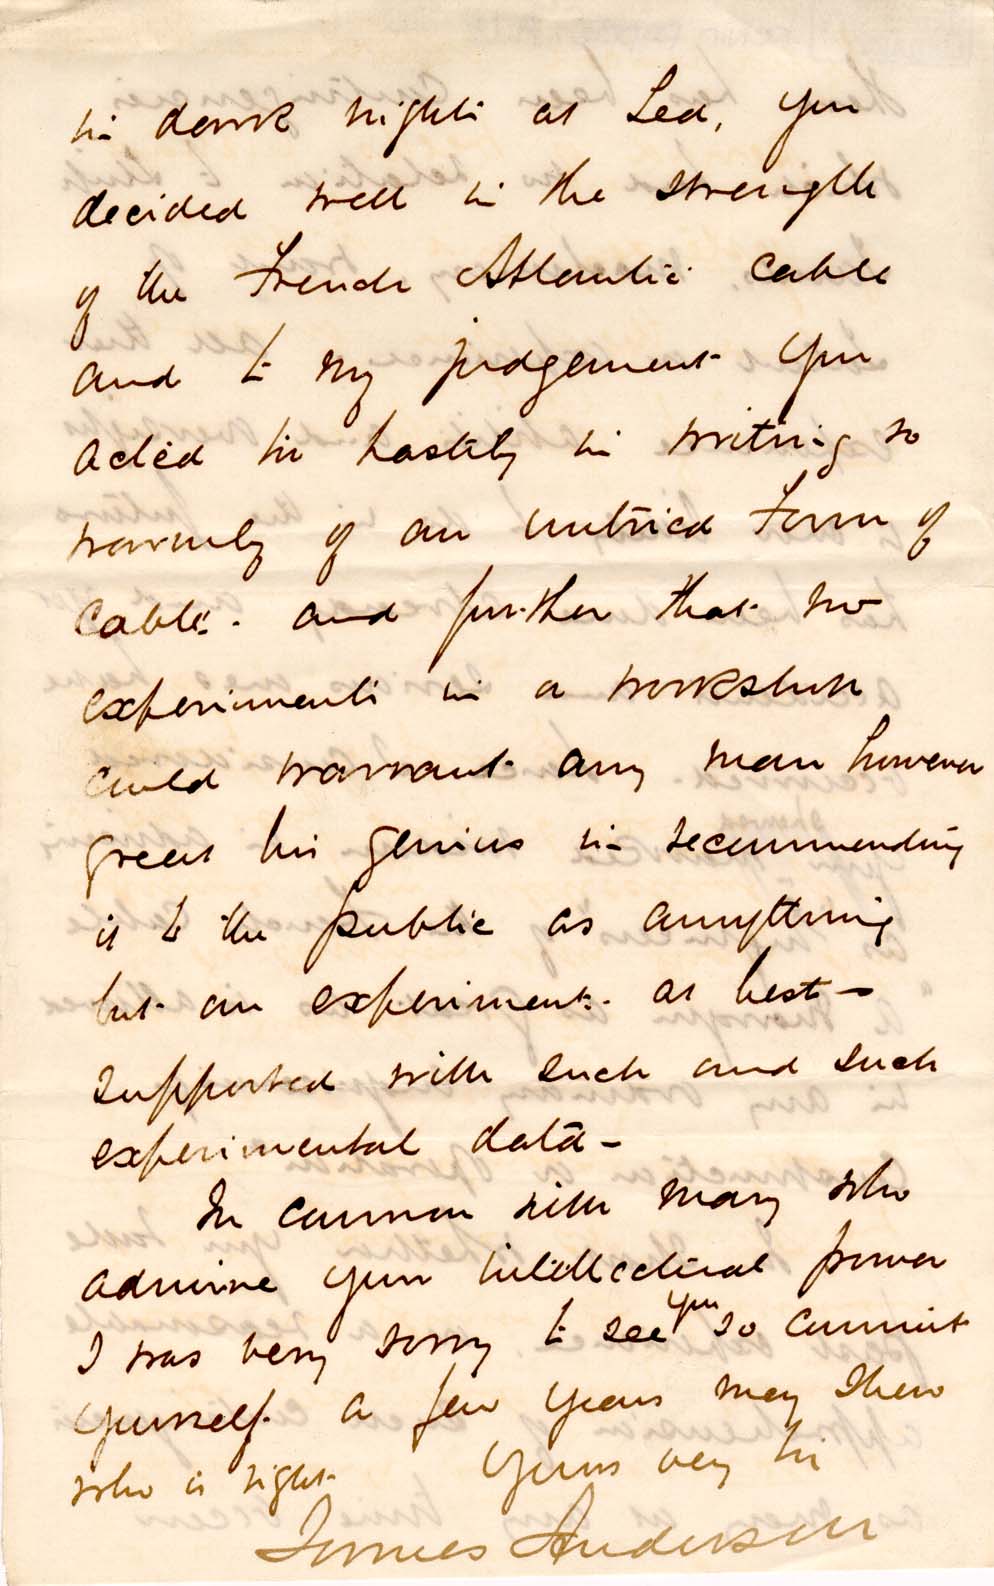 in dark nights at Sea, you
decided well in the strength
of the French Atlantic cable
and to my judgement you
acted too hastily in writing so
warmly of an untried Form of
cable. and further that no
experiments in a workshop
could warrant any man however
great his genius in recommending
it to the public as anything
but an experiment. at best —
supported with such and such
experimental data —
In common with many who
admire your intellectual power
I was very sorry to see you so commit
yourself. a few years may shew
who is right. Yours very
James Anderson